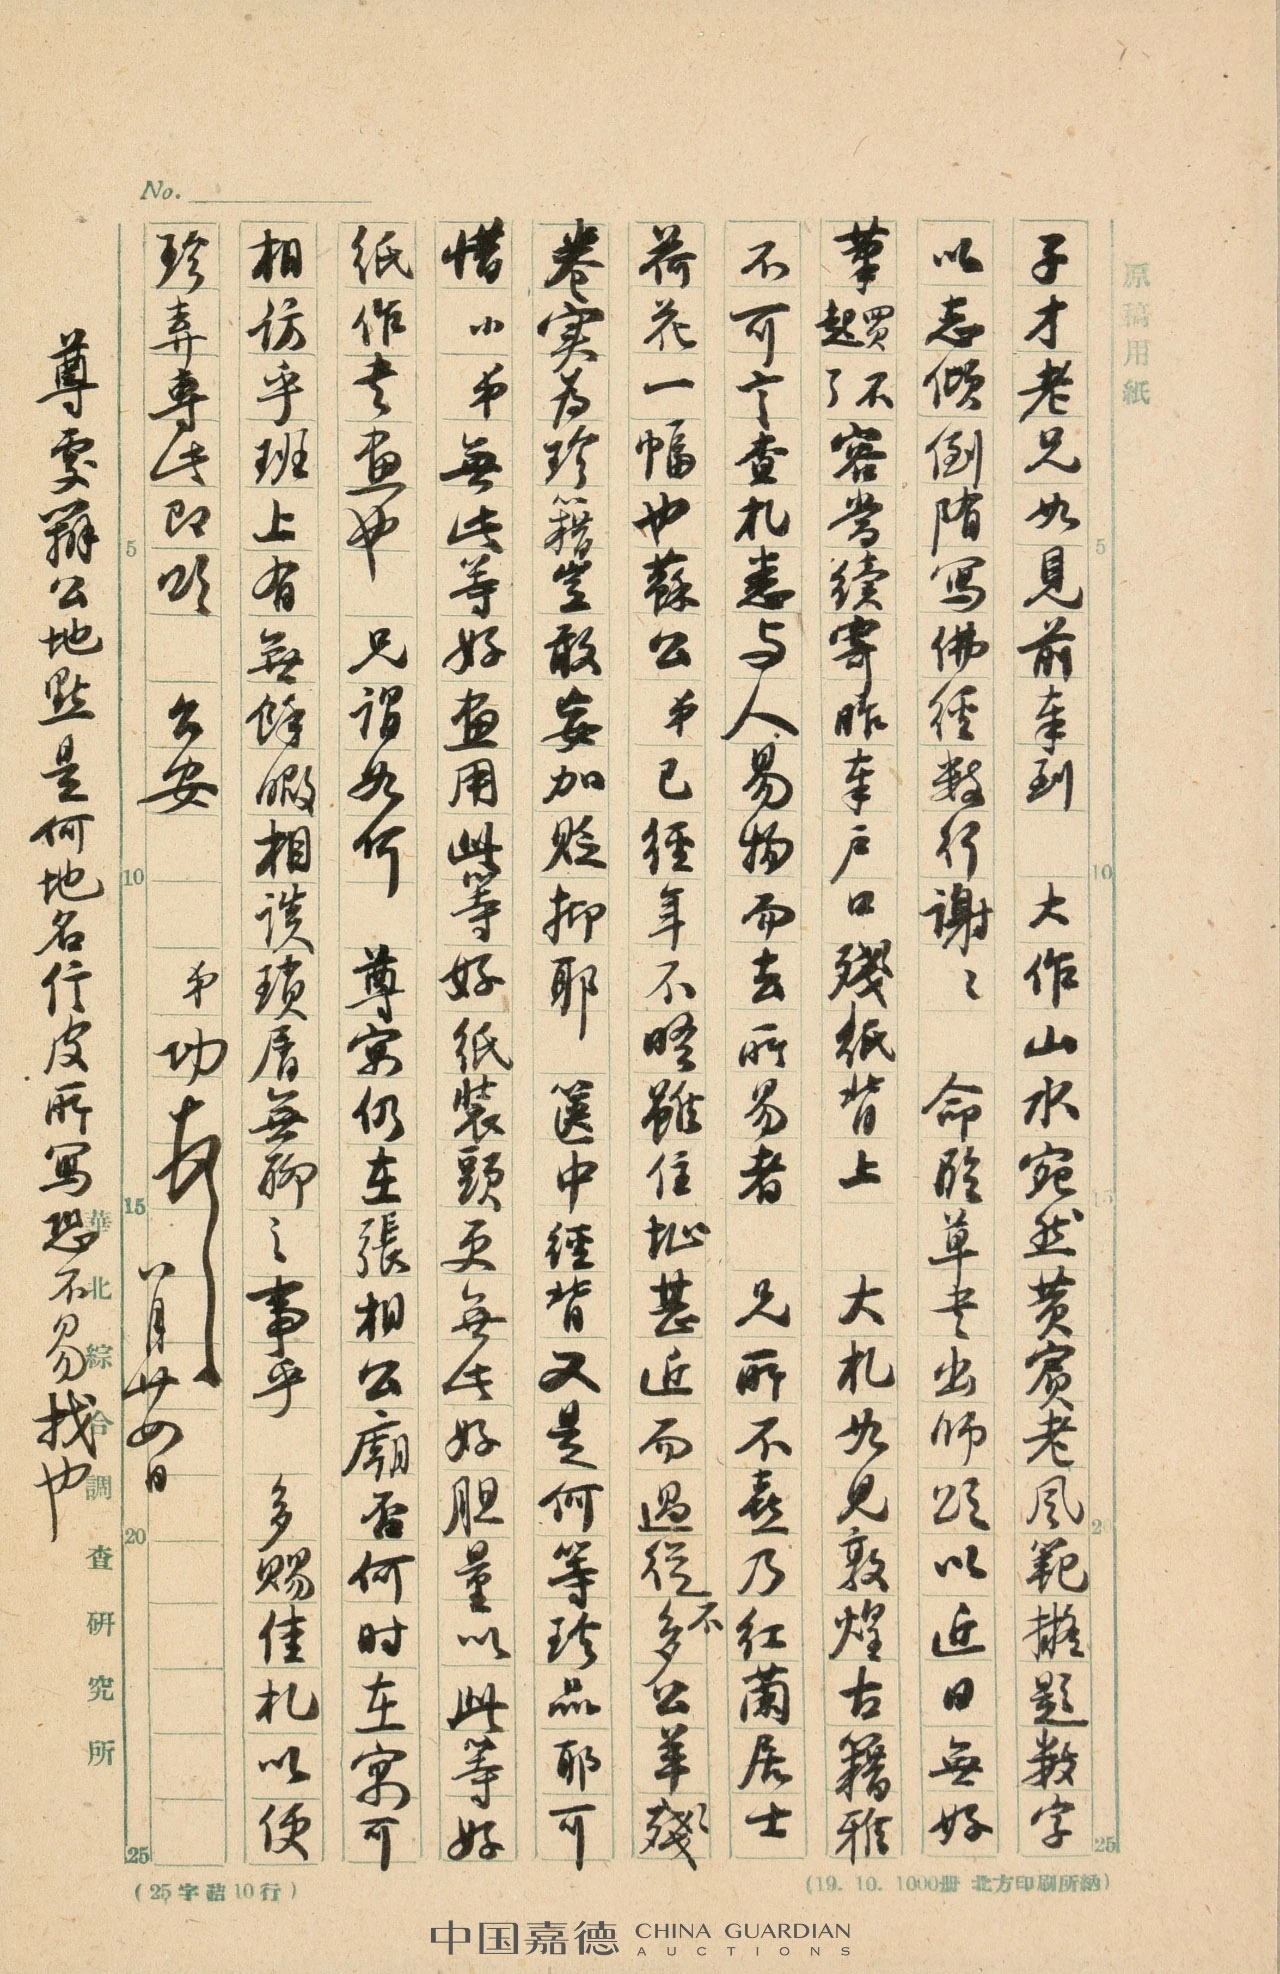 No.
原稿用紙
子才老兄如見前奉到　大作山水宛然黄賓老風範擬題数字
以志傾倒隋寫佛經数行謝〻　命臨草書出師頌以近日無好
筆買不起了容當續寄昨奉户口殘紙背上　大札如見敦煌古籍雅
不可言查札悉与人易物而去所易者　兄所不喜乃紅蘭居士
荷花一幅也蘇公弟已經年不晤雖住址甚近而過從不多公羊殘
卷实为珍籍豈敢妄加貶抑耶　篋中經背又是何等珍品耶可
惜小弟無此等好畫用此等好紙裝頭更無此好胆量以此等好
紙作书畫也　兄謂如何　尊寓仍在張相公廟否何时在寓可
相訪乎班上有無餘暇相談瑣屑無聊之事乎　多賜佳札以便
珍弆專此即頌　公安　弟功　八月廿四日
尊處辦公地點是何地名信皮所寫恐不易找也
5
10
15
20
25
5
10
15
20
25
華北綜合調查研究所
(25字詰10行)
(19. 10. 1000册 北方印刷所納)
中国嘉德 CHINA GUARDIAN
AUCTIONS